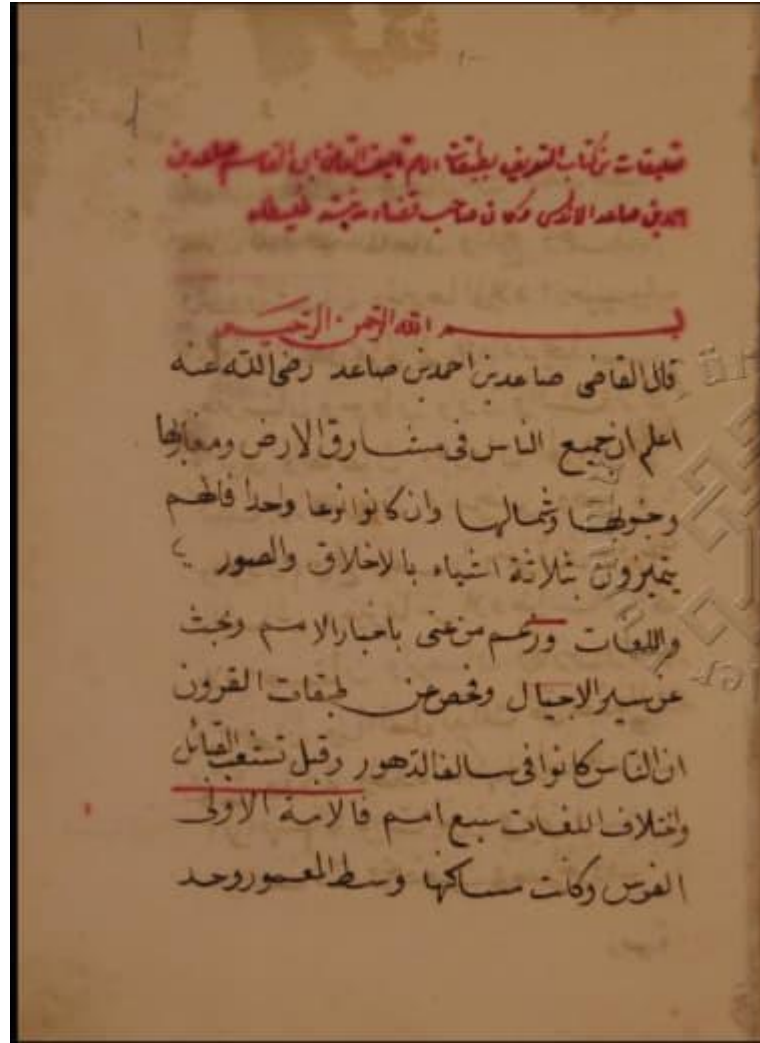 تعليقات من كتاب التعريف بطبقات الامم تاليف القاضى ابى القاسم صاعد بن
احمد بن صاعد الاندلسى وكان صاحب قضاء مدينة طليطله
بسم الله الرحمن الرحيم
قال القاضى صاعد بن احمد بن صاعد رضى الله عنه
اعلم ان جميع الناس فى مشارق الارض ومغاربها
وجنوبها وشمالها وان كانوا نوعا واحدا فانهم
يتميزون بثلاثة اشياء بالاخلاق والصور
واللغات وزعم من عنى باخبار الامم وبحث
عن سير الاجيال وفحص عن طبقات القرون
ان الناس كانوا فى سالف الدهور وقبل تشعب القبائل
واختلاف اللغات سبع امم فالامة الاولى
الفرس وكانت مساكنها وسط المعمور وحد